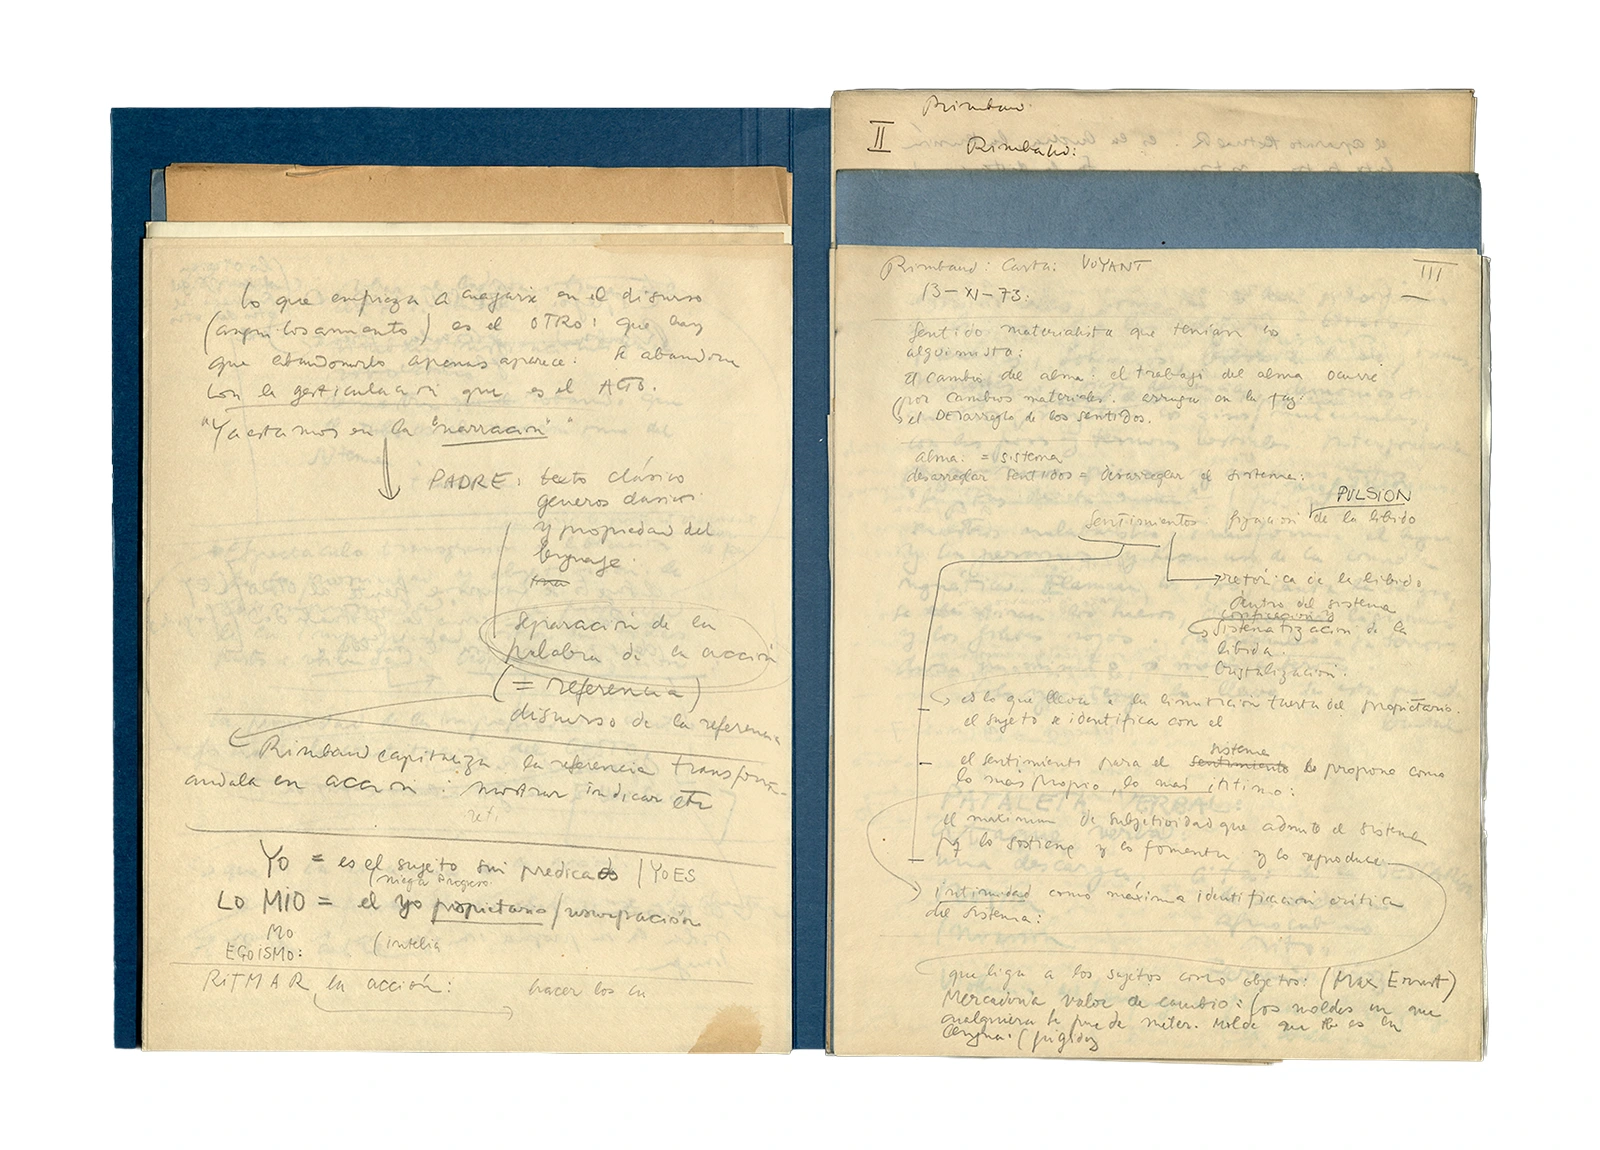 lo que empieza a                en el discurso
(                    ) es el OTRO: que hay
que abandonarlo apenas aparece: se abandona
con la gesticulación que es el ACTO.
"Ya estamos en la "narración" "
PADRE: texto clásico
generos clasicos
y propiedad del
lenguaje.
separación de la
palabra de la acción
(= referencia)
discurso de la referencia
Rimbaud capitaliza la referencia transform-
andola en acción: mostrar indicar etc
YO = es el sujeto sin predicado | YO ES
LO MIO = el yo propietario/usurpación
MO
EGOISMO:
RITMAR la acción: hacer los
Rimbaud
II
Rimbaud:
Rimbaud: Carta: VOYANT
III
13-XI-73:
Sentido materialista que tenían lo
alquimista:
el cambio del alma: el trabajo del alma ocurre
por cambios materiales. arruga en la faz:
el DEsarreglo de los sentidos.
alma: = sistema
desarreglar sentidos = desarreglar el sistema:
PULSION
Sentimientos: fijación de la libido
retórica de la libido
dentro del sistema
codificación y
sistematización de la
libido.
Cristalización:
es lo que lleva a la                      del propietario.
el sujeto se identifica con el
sistema
el sentimiento para el sentimiento lo propone como
lo más propio, lo más íntimo:
el maximum de subjetividad que admite el sistema
pq lo sostiene y lo fomenta y lo reproduce
intimidad como máxima identificación critica
del sistema:
que liga a los sujetos como objetos: (Max Ernst)
Mercadoria valor de cambio: los moldes en que
cualquiera se puede meter. Molde que          es en
lengua: (